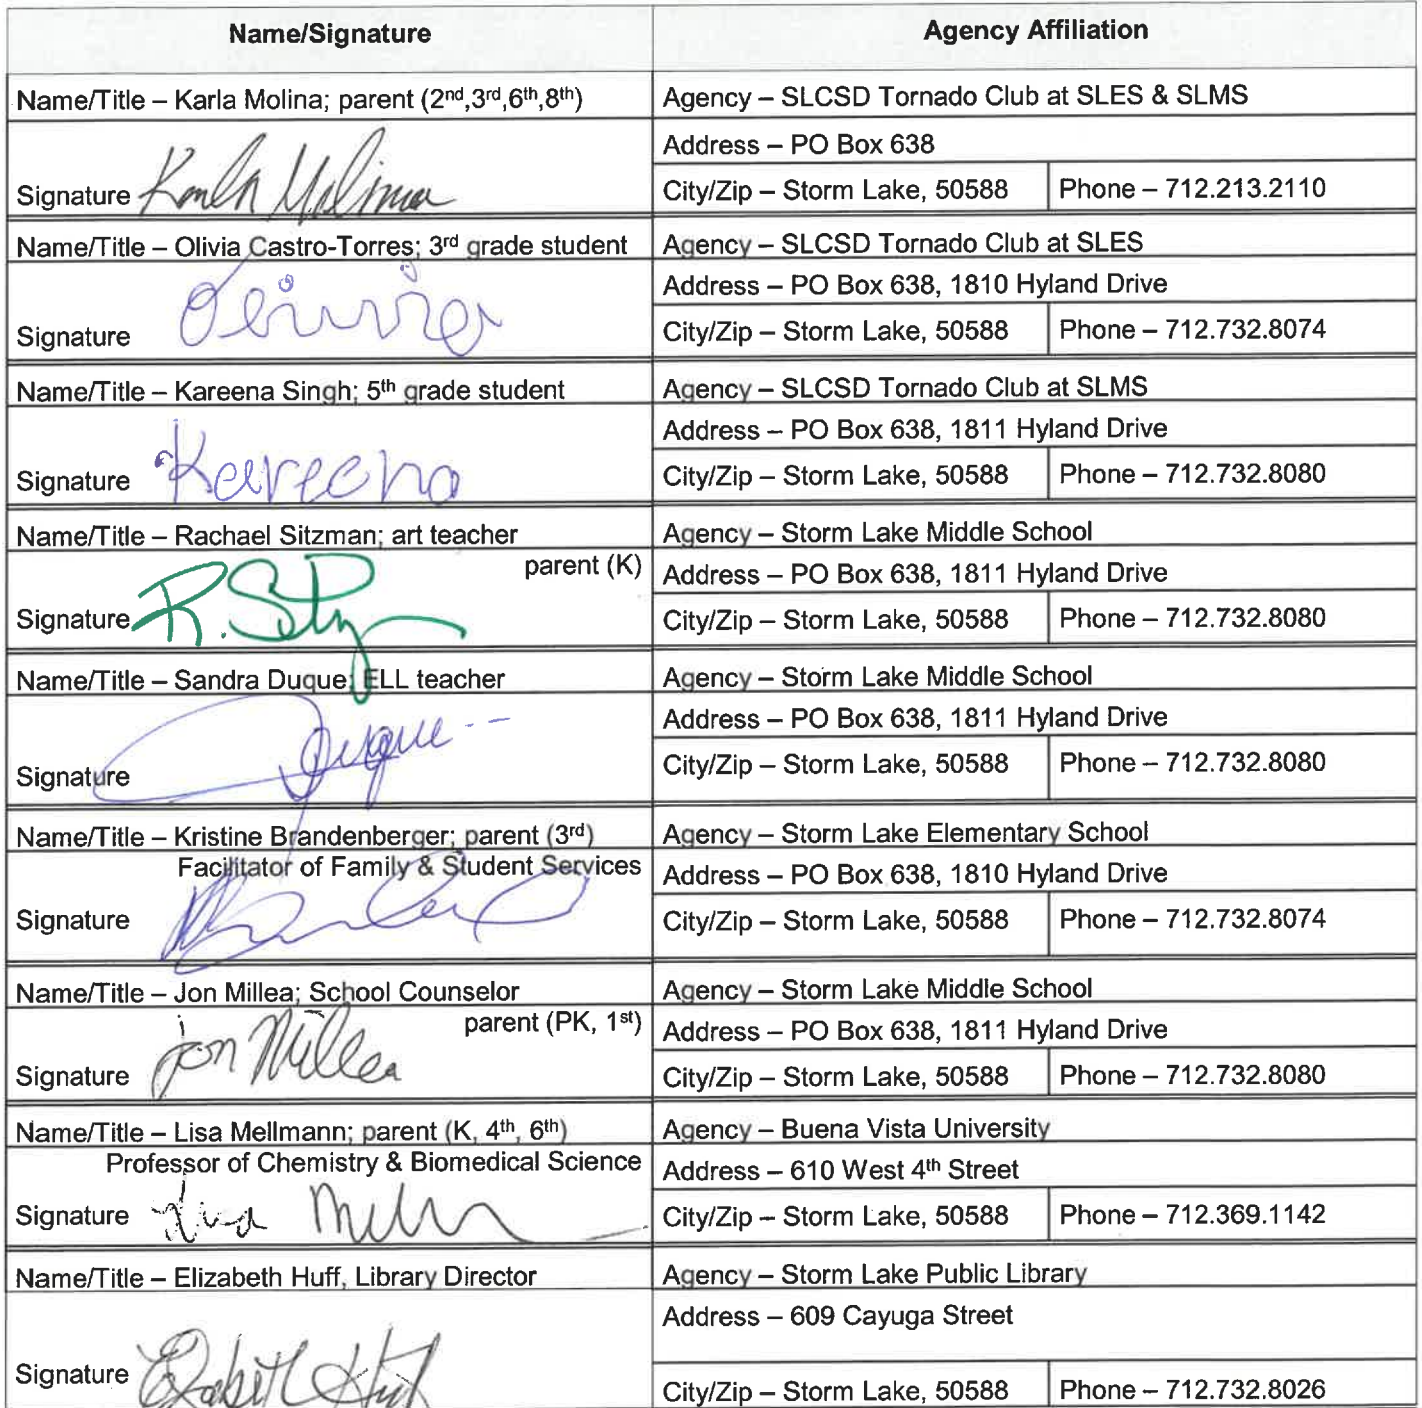 Name/Signature
Agency Affiliation
Name/Title – Karla Molina; parent (2nd,3rd,6th,8th)
Agency – SLCSD Tornado Club at SLES & SLMS
Address – PO Box 638
Signature Karla Molina
City/Zip – Storm Lake, 50588
Phone – 712.213.2110
Name/Title – Olivia Castro-Torres; 3rd grade student
Agency – SLCSD Tornado Club at SLES
Address – PO Box 638, 1810 Hyland Drive
Signature Olivia
City/Zip – Storm Lake, 50588
Phone – 712.732.8074
Name/Title – Kareena Singh; 5th grade student
Agency – SLCSD Tornado Club at SLMS
Address – PO Box 638, 1811 Hyland Drive
Signature Kareena
City/Zip – Storm Lake, 50588
Phone – 712.732.8080
Name/Title – Rachael Sitzman; art teacher
parent (K)
Agency – Storm Lake Middle School
Address – PO Box 638, 1811 Hyland Drive
Signature R.
City/Zip – Storm Lake, 50588
Phone – 712.732.8080
Name/Title – Sandra Duque; ELL teacher
Agency – Storm Lake Middle School
Address – PO Box 638, 1811 Hyland Drive
Signature Duque
City/Zip – Storm Lake, 50588
Phone – 712.732.8080
Name/Title – Kristine Brandenberger; parent (3rd)
Facilitator of Family & Student Services
Agency – Storm Lake Elementary School
Address – PO Box 638, 1810 Hyland Drive
Signature
City/Zip – Storm Lake, 50588
Phone – 712.732.8074
Name/Title – Jon Millea; School Counselor
parent (PK, 1st)
Agency – Storm Lake Middle School
Address – PO Box 638, 1811 Hyland Drive
Signature Jon Millea
City/Zip – Storm Lake, 50588
Phone – 712.732.8080
Name/Title – Lisa Mellmann; parent (K, 4th, 6th)
Professor of Chemistry & Biomedical Science
Agency – Buena Vista University
Address – 610 West 4th Street
Signature Lisa
City/Zip – Storm Lake, 50588
Phone – 712.369.1142
Name/Title – Elizabeth Huff, Library Director
Agency – Storm Lake Public Library
Address – 609 Cayuga Street
Signature Elizabeth Huff
City/Zip – Storm Lake, 50588
Phone – 712.732.8026